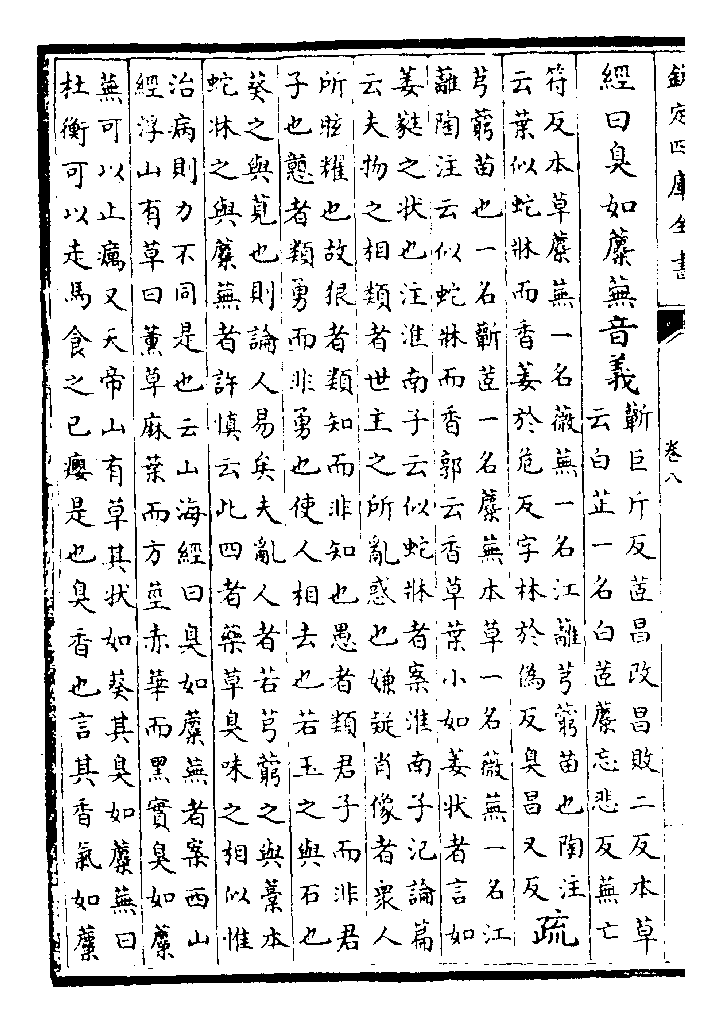 欽定四庫全書
卷八
經曰臭如蘪蕪音義
蘄巨斤反茝昌改昌敗二反本草
云白芷一名白茝蘪忘悲反蕪亡
符反本草蘪蕪一名薇蕪一名江離芎藭苗也陶注
云葉似蛇牀而香萎於危反字林於偽反臭昌又反
疏
芎藭苗也一名蘄茝一名蘪蕪本草一名薇蕪一名江
離陶注云似蛇牀而香郭云香草葉小如萎狀者言如
萎蕤之狀也注淮南子云似蛇牀者案淮南子氾論篇
云夫物之相類者世主之所亂惑也嫌疑肖像者衆人
所眩耀也故狠者類知而非知也愚者類君子而非君
子也戇者類勇而非勇也使人相去也若玉之與石也
葵之與莧也則論人易矣夫亂人者若芎藭之與藁本
蛇牀之與蘪蕪者許慎云此四者藥草臭味之相似惟
治病則力不同是也云山海經曰臭如蘪蕪者案西山
經浮山有草曰薰草麻葉而方莖赤華而黑實臭如蘪
蕪可以止癘又天帝山有草其狀如葵其臭如蘪蕪曰
杜衡可以走馬食之已癭是也臭香也言其香氣如蘪